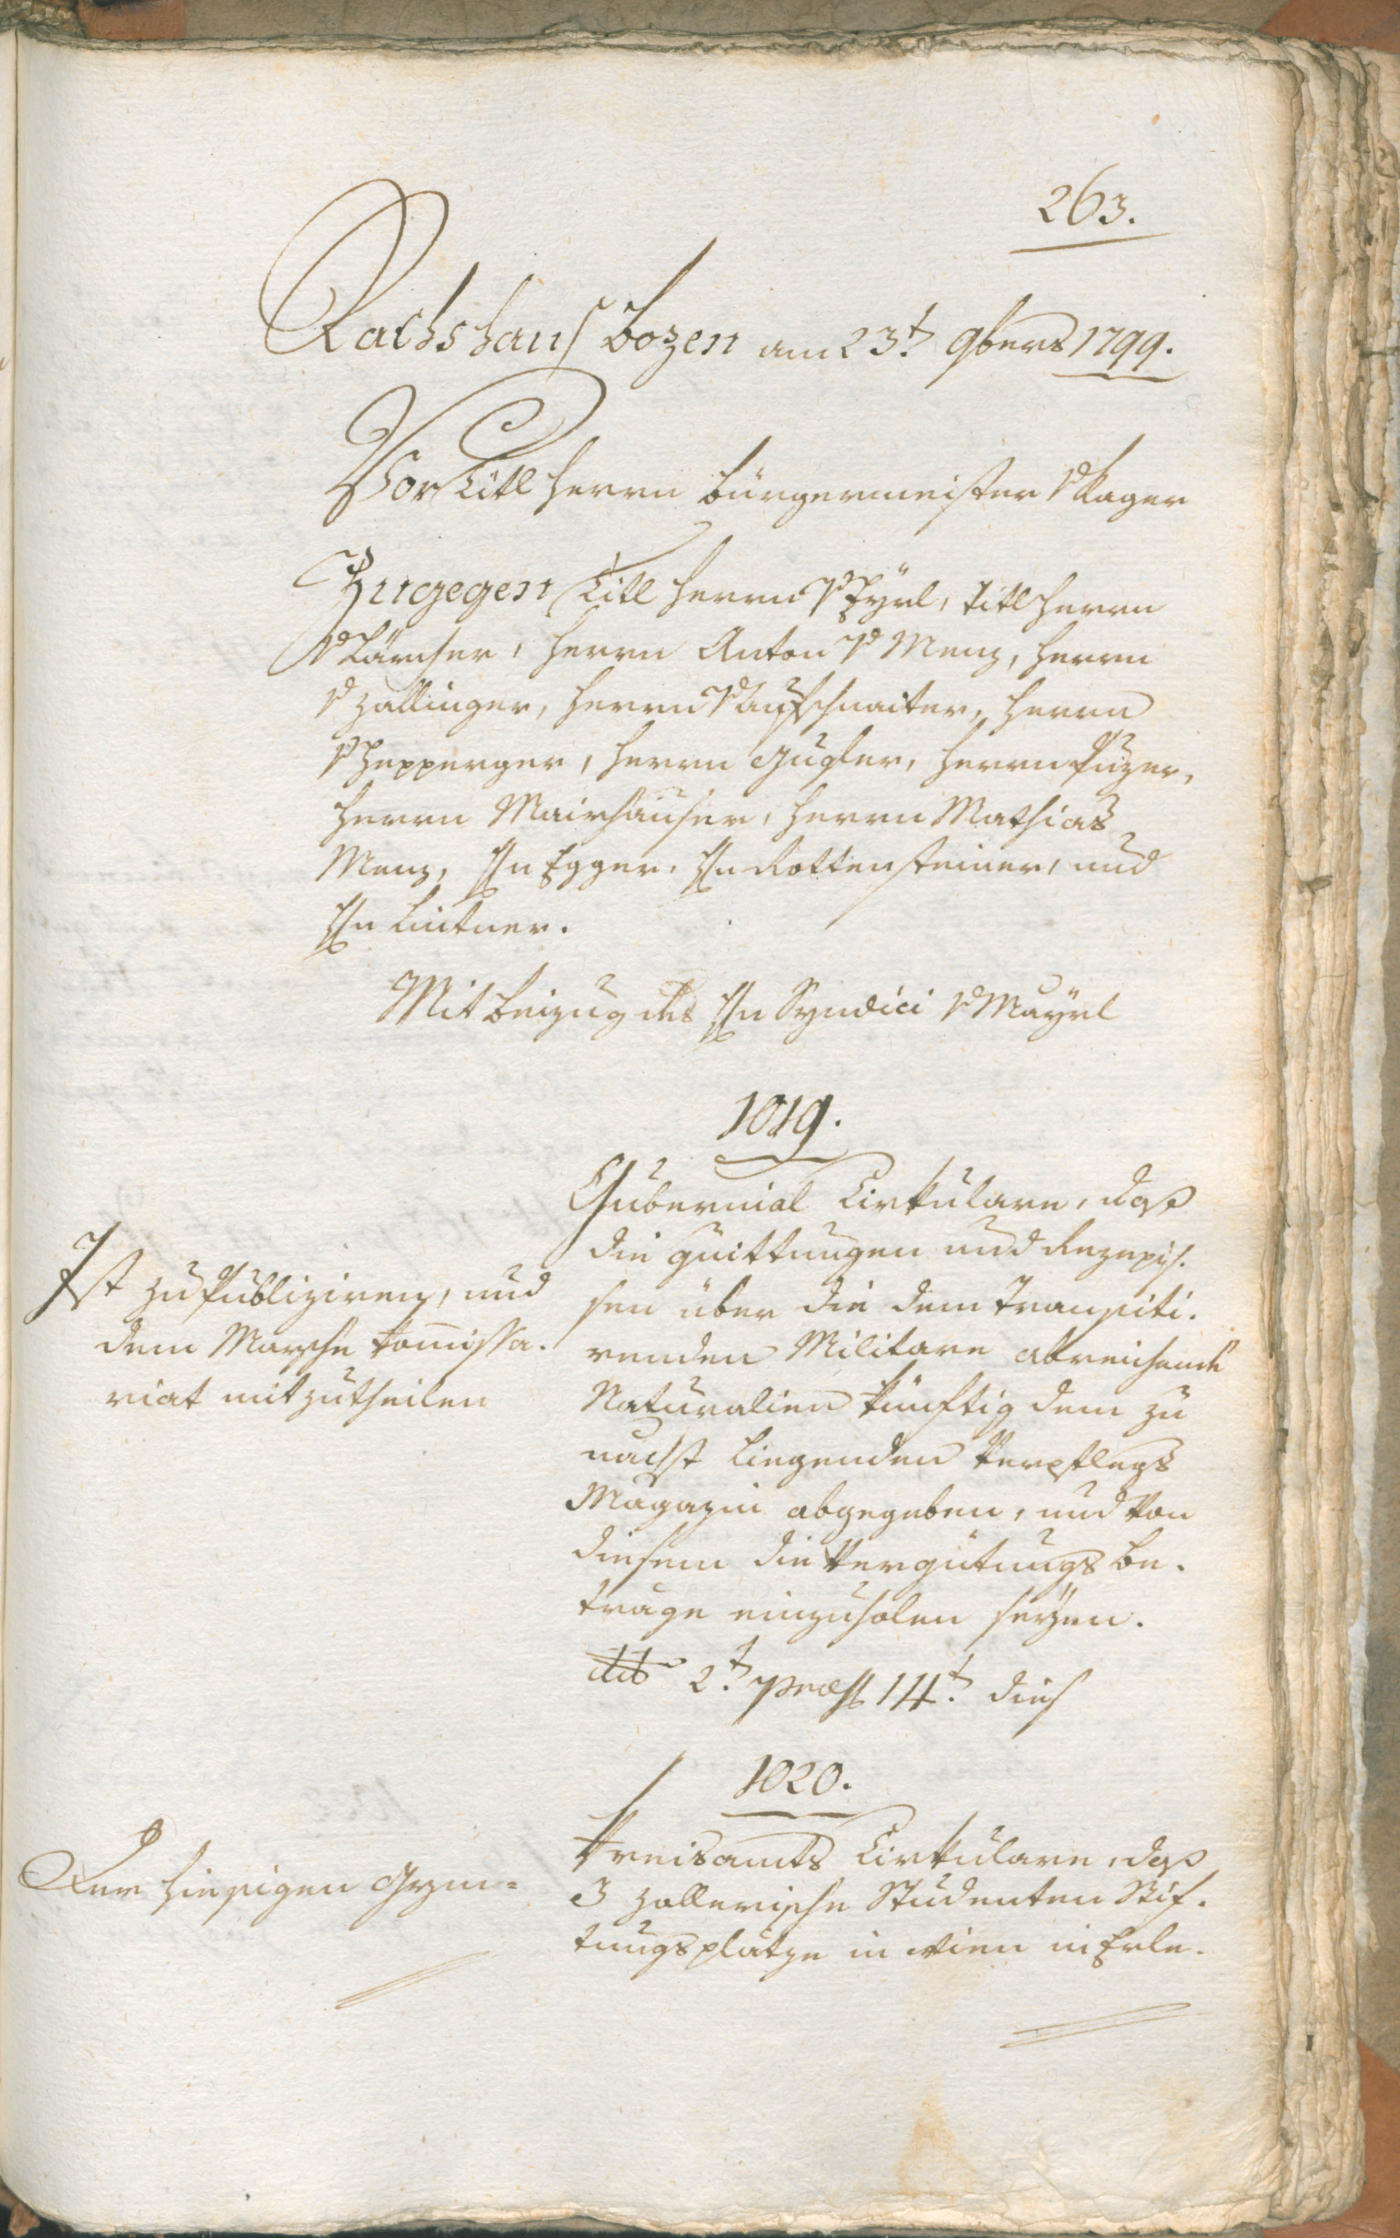 263.
Rathshauß Bozen am 23.t 9bers 1799.
Vor Titl Herrn Bürgermeister v Kager
Zugegen Titl Herrn v Pfyrl, titl Herrn
v Lärcher, Herrn Anton v Menz, Herrn
v Zallinger, Herrn v Aufschnaiter, Herrn
v Hepperger, Herrn Gugler, Herrn Puzer,
Herrn Mairhauser, Herrn Mathias
Menz, Hn Egger, Hn Rottensteiner, und
Hn Lintner.
Mit Beizug des Hn Syndici v Mayrl
1019.
Gubernial Cirkulare, daß
die Quittungen und Rezepis.
sen über die dem Transiti.
renden Militare abreichende
Naturalien künftig dem zu
nachst liegenden Verpflegs
Magazin abgegeben, und von
diesem die Vergütungs be.
trage einzuholen seyen.
ddo 2.t praes 14.t dies
Ist zu Publiziren, und
dem Marsche Komissa.
riat mitzutheilen
1020.
Kreisamts Cirkulare, daß
3 zollerische Studenten Stif.
tungsplätze in Wien in Erle.
Der hiesigen Gym=